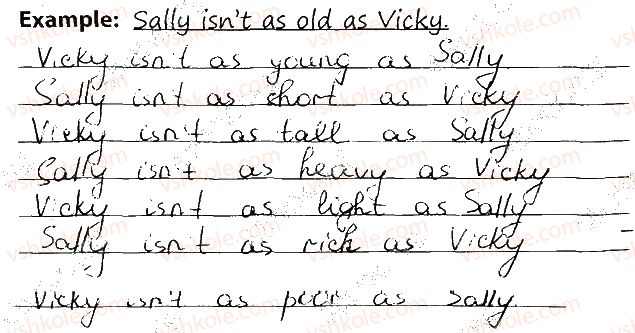 Example: Sally isn't as old as Vicky.
Vicky isn't as young as Sally
Sally isn't as short as Vicky
Vicky isn't as tall as Sally
Sally isn't as heavy as Vicky
Vicky isn't as light as Sally
Sally isn't as rich as Vicky
Vicky isn't as poor as Sally